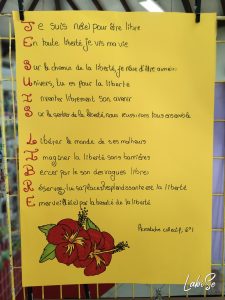 Je suis né(e) pour être libre
En toute liberté je vis ma vie
Sur le chemin de la liberté, je rêve d'être aimé(e)
Univers, tu es pour la liberté
Inventer librement son avenir
Sur le sentier de la liberté, nous réussirons tous ensemble
Libérer le monde de ses malheurs
Imaginer la liberté sans barrières
Bercer par le son des vagues libres
Réserver, lui sa place resplendissante est la liberté
Emerveillé(e) par la beauté de la liberté
Acrostiche collectif, 6°1